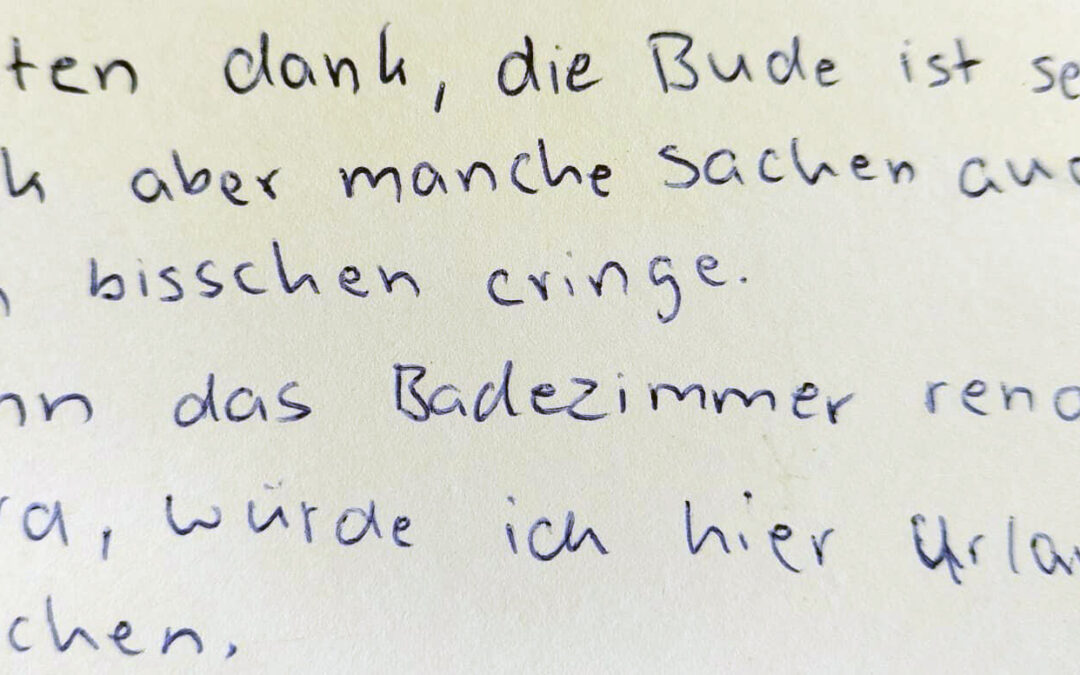 ten dank, die Bude ist se
k aber manche Sachen auc
n bisschen cringe.
nn das Badezimmer reno
rd, würde ich hier Urlau
chen.